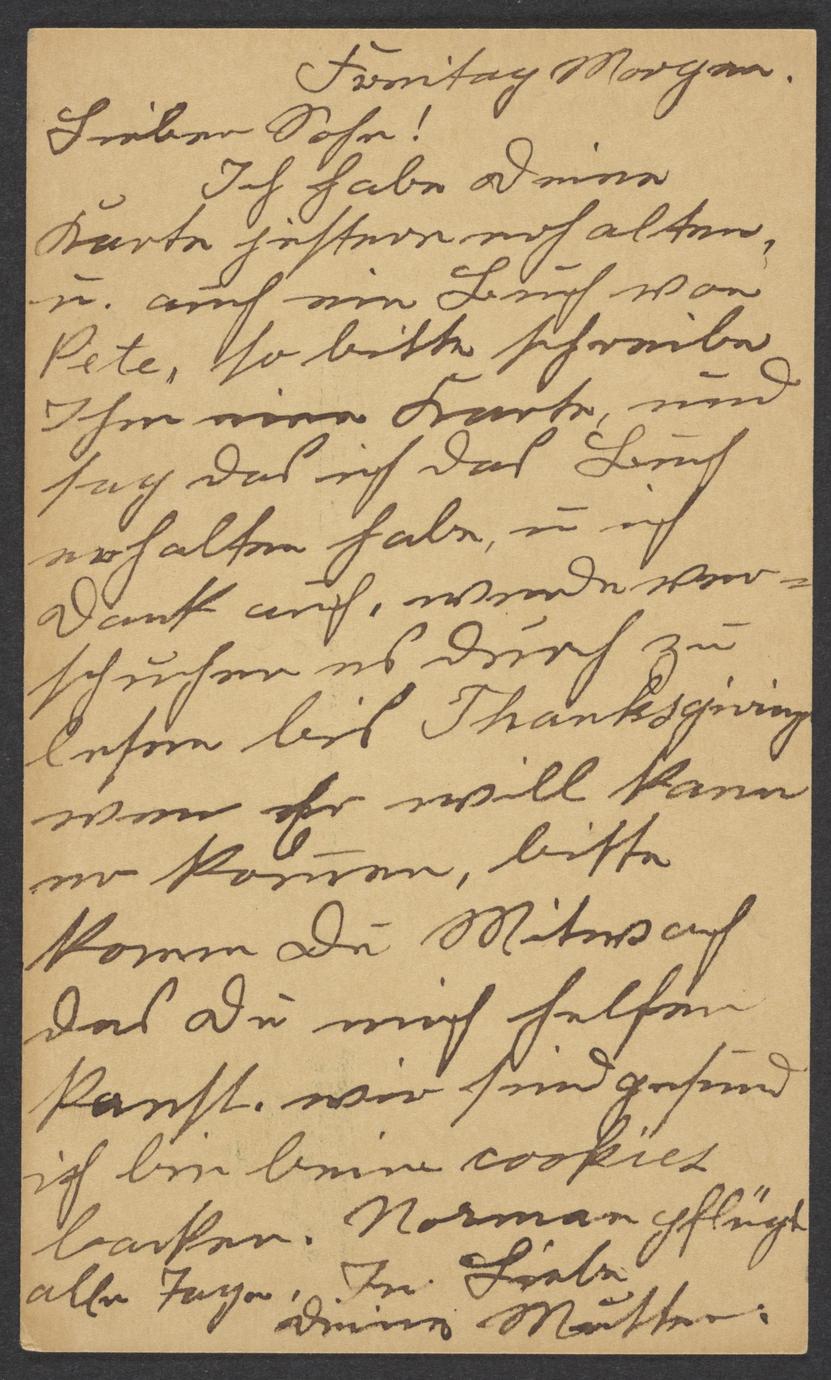 Freitag Morgen.
Lieber Sohn!
Ich habe Deine
Karte jestern erhalten,
u. auch ein Buch von
Pete, so bitte schreibe
Ihm eine Karte, und
sag das ich das Buch
erhalten habe, u ich
Dank auch, werde ver=
suchen es durch zu
lesen bis Thanksgiving
wen er will kann
er kom̅en, bitte
komm Du Mitwoch
das Du mich helfen
kanst. wir sind gesund
ich bin beim cookies
backen. Norman pflügt
alle Tage. In Liebe
deine Mutter.